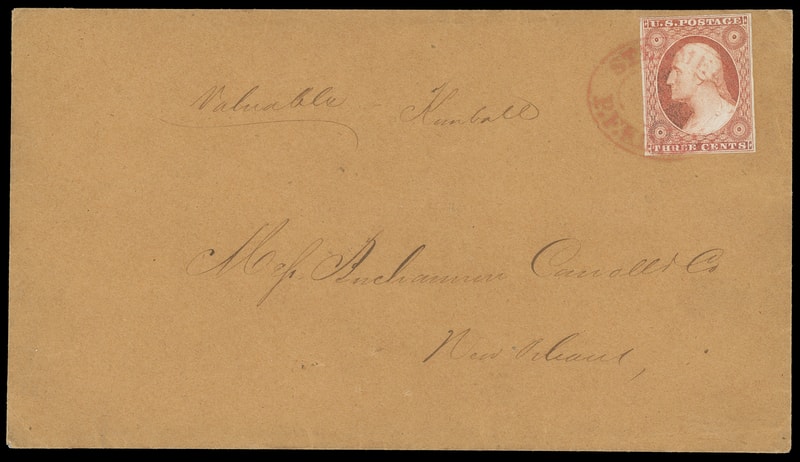 U.S. POSTAGE
THREE CENTS
Valuable - Kimball
Messrs. Buchannon Carroll & Co
New Orleans,